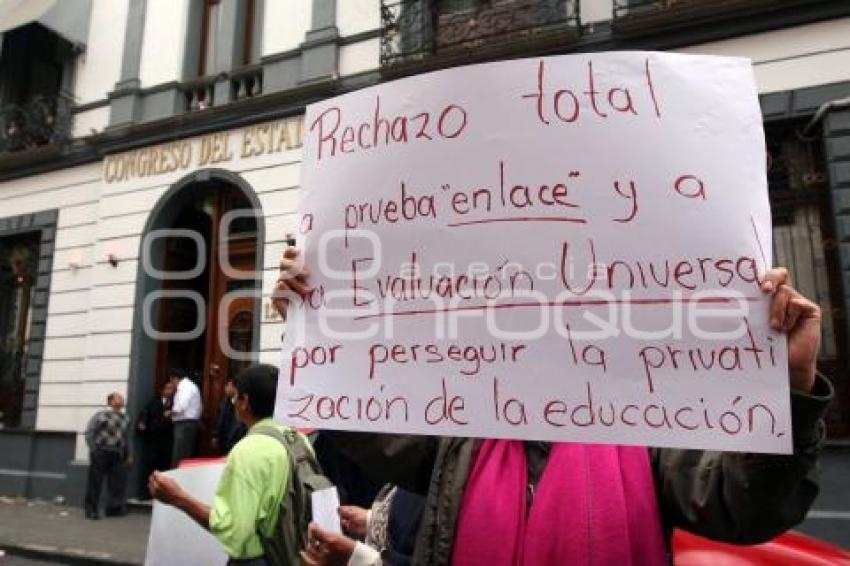 CONGRESO DEL ESTADO
Rechazo total
a prueba "enlace" y a
la Evaluación Universal
por perseguir la privati
zación de la educación.
agencia
enfoque